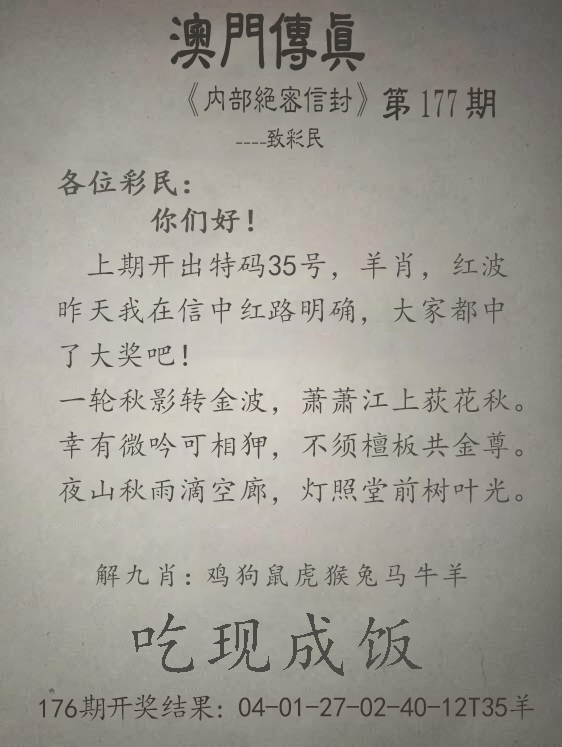 澳門傳眞
《内部絕密信封》第177期
----致彩民
各位彩民：
你们好！
上期开出特码35号，羊肖，红波
昨天我在信中红路明确，大家都中
了大奖吧！
一轮秋影转金波，萧萧江上荻花秋。
幸有微吟可相狎，不须檀板共金尊。
夜山秋雨滴空廊，灯照堂前树叶光。
解九肖：鸡狗鼠虎猴兔马牛羊
吃现成饭
176期开奖结果：04-01-27-02-40-12T35羊